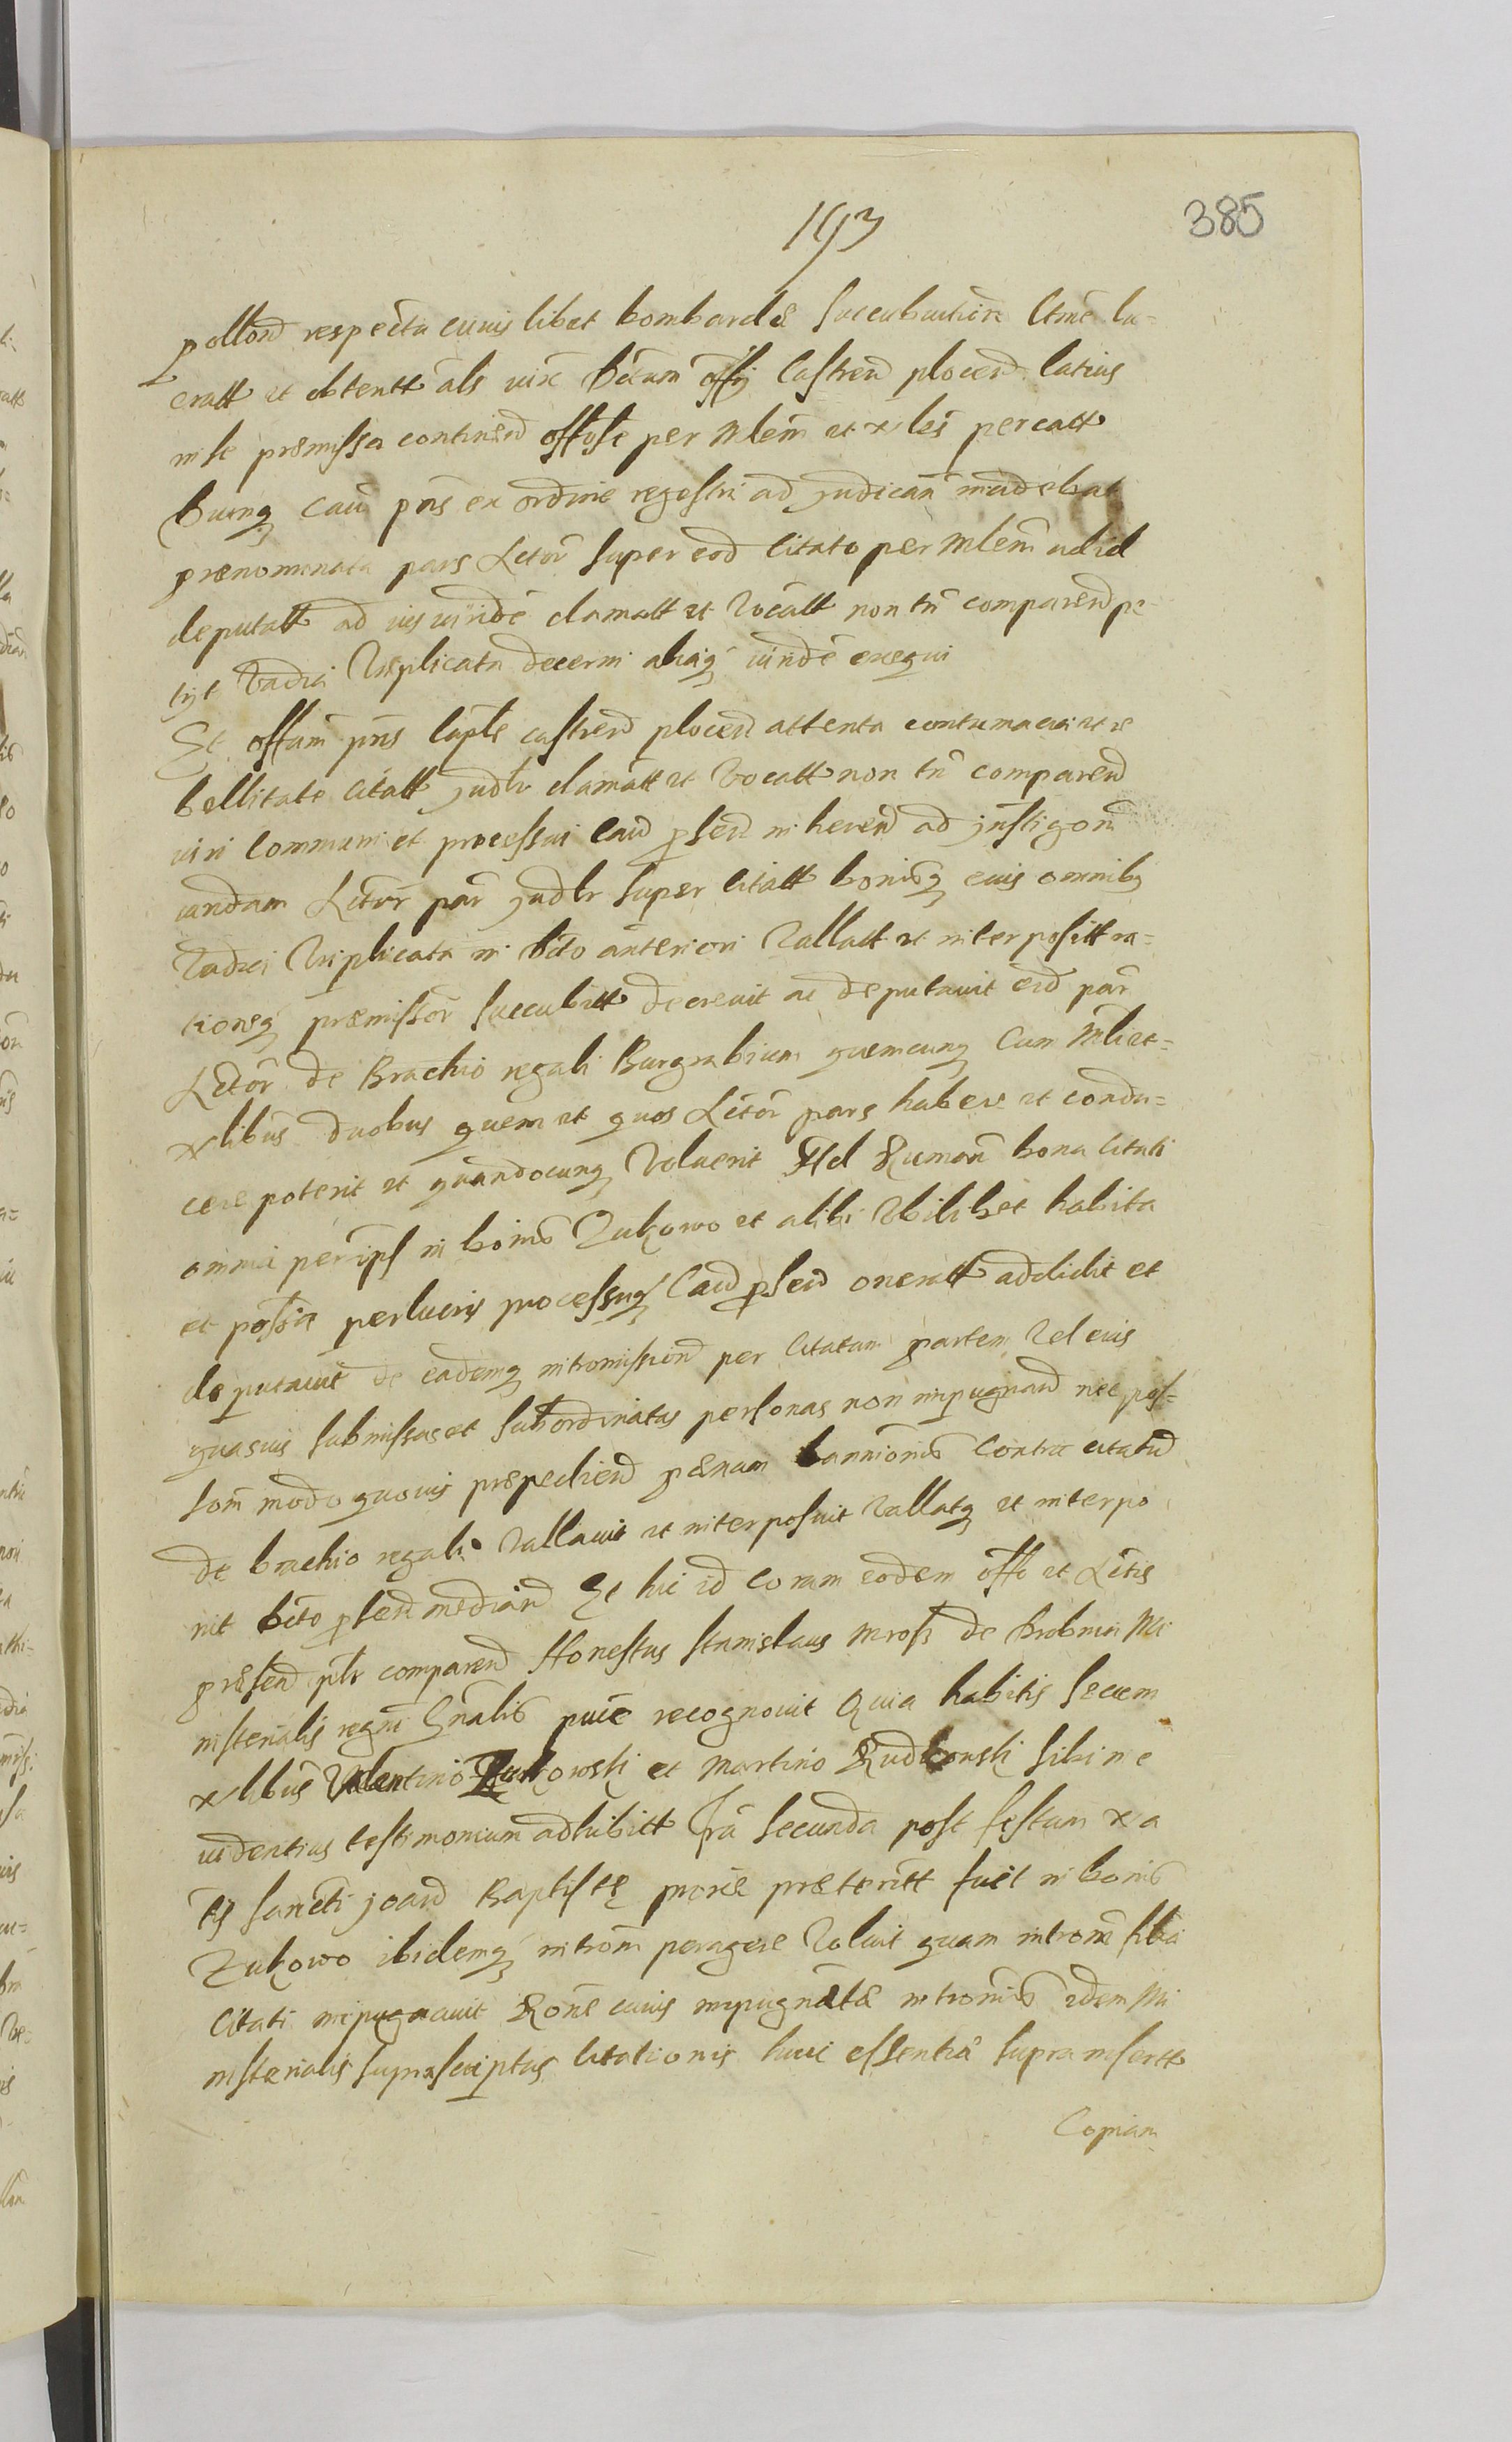 193
385
pollon̄d respectu cuius libet bombardæ succubuition̄e Ctme lu-
cratt et obtentt als iux̄ Dc̄tum off̄ij Castren̄ plocen̄ latius
in se præmissa continen̄d offose per Mlem̄ et nłes percatt
huncq caū pn̄s ex ordine regestri ad judicān̄ incidebat
prænominata pars Actor̄ super eod̄ Citato per Mlem̄ ad id
deputatt ad ius iuridē clamatt et Vocatt non tn̄ comparen̄d pe-
tijt Vadia triplicata decerni aliaq iuridē exequi
Et off̄ium pn̄s Capłe castren̄ plocen̄ attenta contumacia et re
bellitate Citatt judłr clamatt et Vocatt non tn̄ comparen̄d
iuri Communi et processui Cau p̄sen̄ inheren̄d ad instigon̄
eandam Actor̄ par judłr super Citatt bonisq eius omnibq
Vadia triplicata in Dcto anteriori Vallatt et interpositt ra-
tioneq præmissor̄ succubitt decrevit ac deputavit eid̄ par
Actor̄ de Brachio regali Burgrabium quemcunq Cum Mli et
nłibus duobus quem et quos Actor̄ pars habere et condu-
cere poterit et quandocunq Voluerit Ad Rumān̄ bona Citati
omnia per ips in bonis Zukowo et alibi Ubilibet habita
et posša perlucris processusq Cau p̄sen̄ oneratt addidit et
deputavit de eademq intromission̄d per Citatam partem Vel eius
quasvis submissas et subordinatas personas non impugnan̄d nec pos-
som̄ modo quovis præpedien̄d pænam bannionis Contra citatū
de brachio regali Vallavit et interposuit Vallatq et interpo
nit Dcto p̄sen̄ median̄ Et hic id coram eodem off̄o et Actis
præsen̄ płr comparen̄d Honestus Stanislaus Mross de Drobnin Mi
nisterialis regni Gn̄alis pure recognovit Quia habitis secum
nłibus Valentino Zukowski et Martino Rudkowski sibi in e
videntius testimonium adhibitt fra secunda post festum Na
tis sancti Joan̄ Baptistę proxe præteritt fuit in bonis
Zukowo ibidemq introm̄ peragere Voluit quam introm̄ filia
Citati impugnavit Rone cuius impugnatæ intromis idem Mi
nisterialis suprascriptus Citationis huic essentiæ supra insertt
Copiam